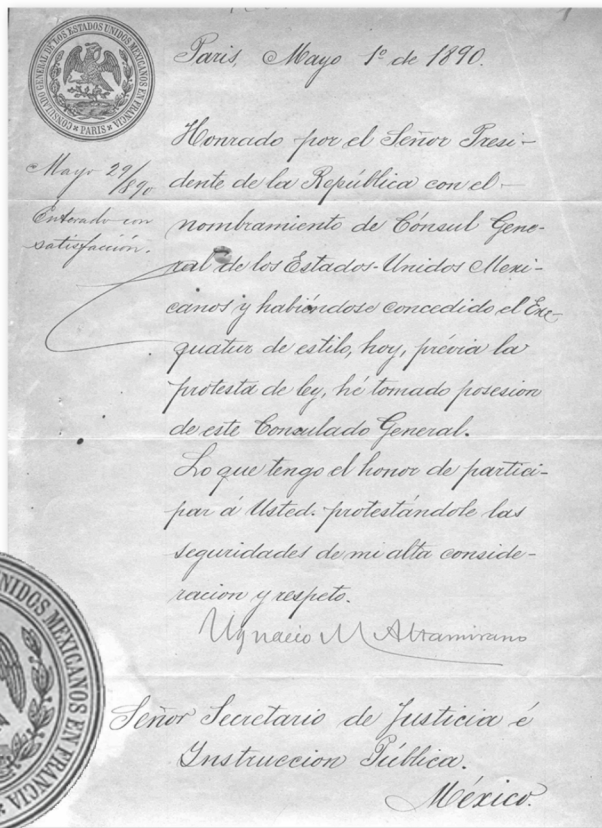 CONSULADO GENERAL DE LOS ESTADOS UNIDOS MEXICANOS EN FRANCIA
PARIS
Paris, Mayo 1º de 1890.
Mayo 29/890
Enterado con
satisfacción.
Honrado por el Señor Presi-
dente de la República con el
nombramiento de Cónsul Gene-
ral de los Estados-Unidos Mexi-
canos y habiéndose concedido el Exe-
quatur de estilo, hoy, prévia la
protesta de ley, hé tomado posesion
de este Consulado General.
Lo que tengo el honor de partici-
par á Usted. protestándole las
seguridades de mi alta conside-
racion y respeto.
Ygnacio M Altamirano
Señor Secretario de Justicia é
Instruccion Pública.
México.
UNIDOS MEXICANOS EN FRANCIA